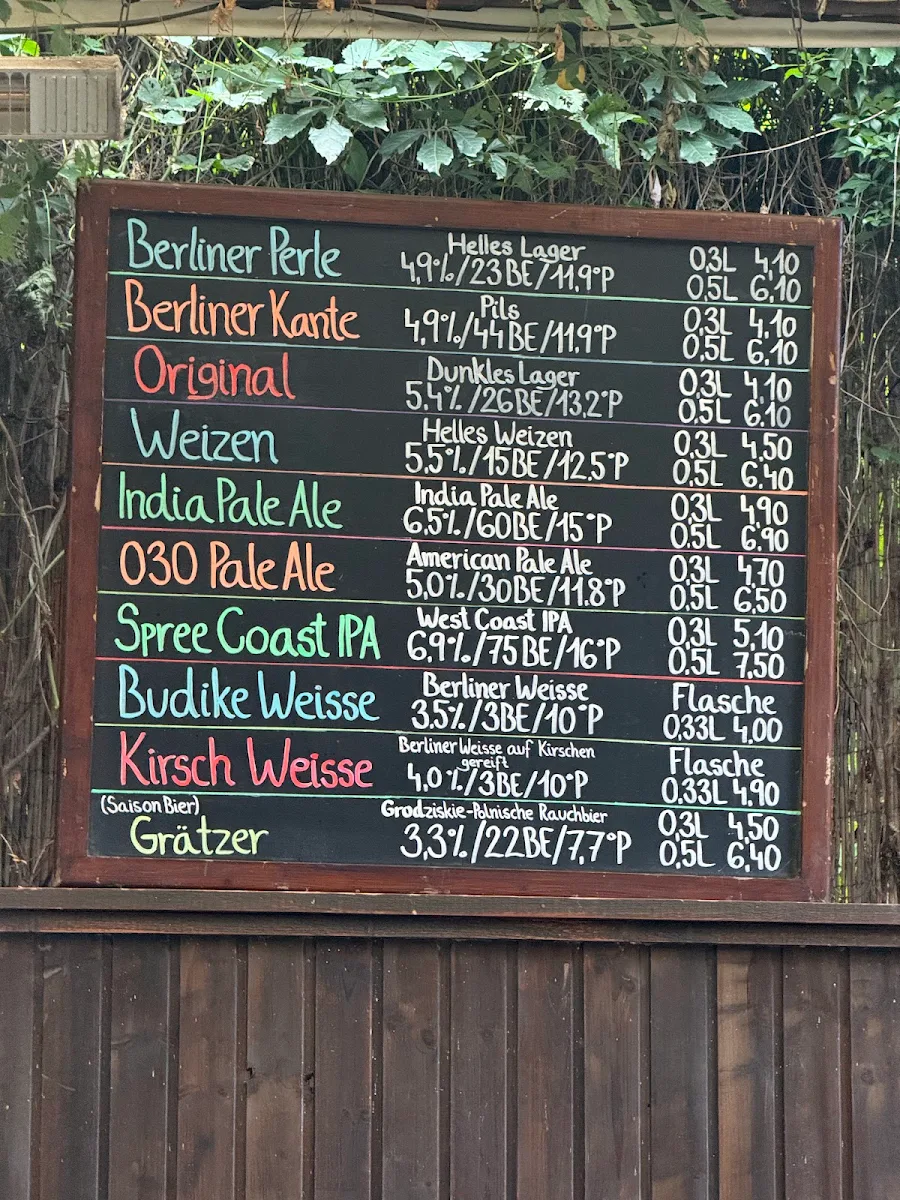 Berliner Perle
Helles Lager
4,9%/23BE/11,9°P
0,3L 4,10
0,5L 6,10
Berliner Kante
Pils
4,9%/44BE/11,9°P
0,3L 4,10
0,5L 6,10
Original
Dunkles Lager
5,4%/26BE/13,2°P
0,3L 4,10
0,5L 6,10
Weizen
Helles Weizen
5,5%/15BE/12,5°P
0,3L 4,50
0,5L 6,40
India Pale Ale
India Pale Ale
6,5%/60BE/15°P
0,3L 4,90
0,5L 6,90
030 Pale Ale
American Pale Ale
5,0%/30BE/11.8°P
0,3L 4,70
0,5L 6,50
Spree Coast IPA
West Coast IPA
6,9%/75BE/16°P
0,3L 5,10
0,5L 7,50
Budike Weisse
Berliner Weisse
3,5%/3BE/10°P
Flasche
0,33L 4,00
Kirsch Weisse
Berliner Weisse auf Kirschen
gereift
4,0%/3BE/10°P
Flasche
0,33L 4,90
(Saison Bier)
Grätzer
Grodziskie-Polnische Rauchbier
3,3%/22BE/7,7°P
0,3L 4,50
0,5L 6,40